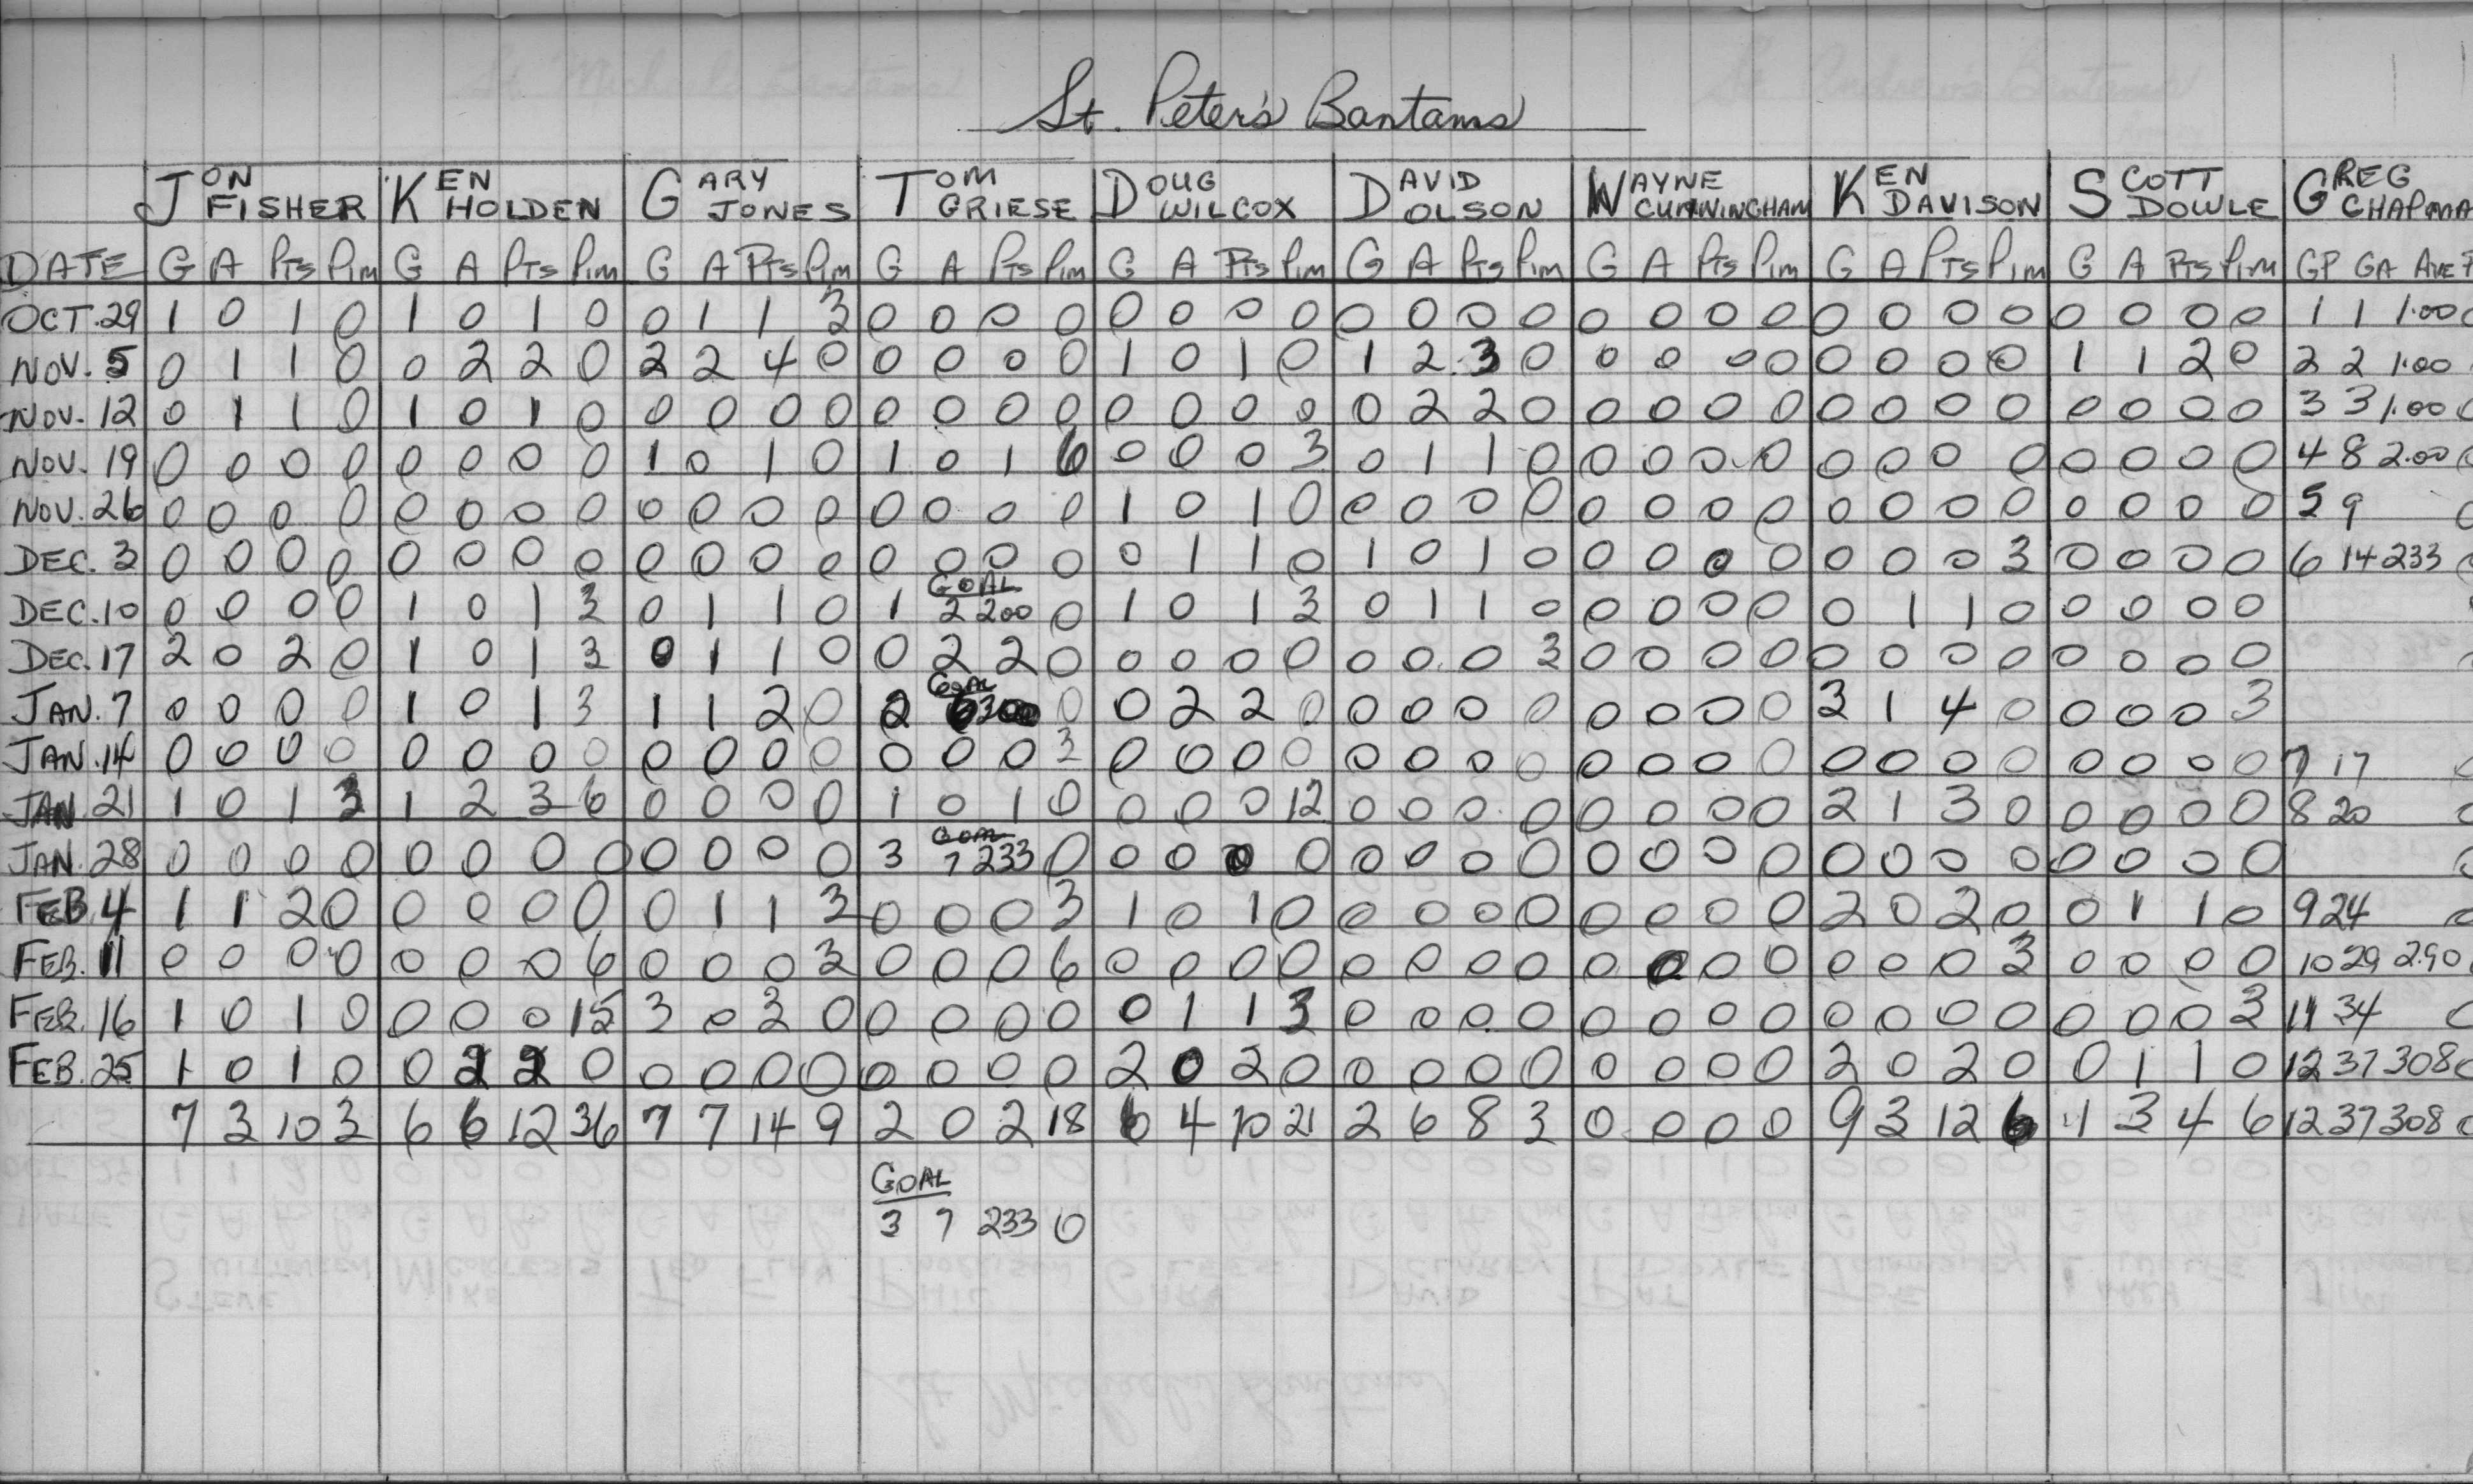 St. Peter's Bantams
JON FISHER KEN HOLDEN GARY JONES TOM GRIESE DOUG WILCOX DAVID OLSON WAYNE CUNNINGHAM KEN DAVISON SCOTT DOWLE GREG CHAPMA
DATE G A Pts Pim G A Pts Pim G A Pts Pim G A Pts Pim G A Pts Pim G A Pts Pim G A Pts Pim G A Pts Pim G A Pts Pim GP GA AVE P
OCT. 29 1 0 1 0 1 0 1 0 0 1 1 3 0 0 0 0 0 0 0 0 0 0 0 0 0 0 0 0 0 0 0 0 0 0 0 0 1 1 1.00 0
NOV. 5 0 1 1 0 0 2 2 0 2 2 4 0 0 0 0 0 1 0 1 0 1 2 3 0 0 0 0 0 0 0 0 0 1 1 2 0 2 2 1.00
NOV. 12 0 1 1 0 1 0 1 0 0 0 0 0 0 0 0 0 0 0 0 0 0 2 2 0 0 0 0 0 0 0 0 0 0 0 0 0 3 3 1.00 0
NOV. 19 0 0 0 0 0 0 0 0 1 0 1 0 1 0 1 6 0 0 0 3 0 1 1 0 0 0 0 0 0 0 0 0 0 0 0 0 4 8 2.00 0
NOV. 26 0 0 0 0 0 0 0 0 0 0 0 0 0 0 0 0 1 0 1 0 0 0 0 0 0 0 0 0 0 0 0 0 0 0 0 0 5 9 0
DEC. 3 0 0 0 0 0 0 0 0 0 0 0 0 0 0 0 0 0 1 1 0 1 0 1 0 0 0 0 0 0 0 0 3 0 0 0 0 6 14 233 0
GOAL
DEC. 10 0 0 0 0 1 0 1 3 0 1 1 0 1 2 200 0 1 0 1 3 0 1 1 0 0 0 0 0 0 1 1 0 0 0 0 0
DEC. 17 2 0 2 0 1 0 1 3 0 1 1 0 0 2 2 0 0 0 0 0 0 0 0 3 0 0 0 0 0 0 0 0 0 0 0 0
GOAL
JAN. 7 0 0 0 0 1 0 1 3 1 1 2 0 2 0 0 2 2 0 0 0 0 0 0 0 0 0 3 1 4 0 0 0 0 3
JAN. 14 0 0 0 0 0 0 0 0 0 0 0 0 0 0 0 3 0 0 0 0 0 0 0 0 0 0 0 0 0 0 0 0 0 0 0 0 7 17 0
JAN 21 1 0 1 3 1 2 3 6 0 0 0 0 1 0 1 0 0 0 0 12 0 0 0 0 0 0 0 0 2 1 3 0 0 0 0 0 8 20 0
GOAL
JAN. 28 0 0 0 0 0 0 0 0 0 0 0 0 3 7 233 0 0 0 0 0 0 0 0 0 0 0 0 0 0 0 0 0 0 0 0 0 0
FEB 4 1 1 2 0 0 0 0 0 0 1 1 3 0 0 0 3 1 0 1 0 0 0 0 0 0 0 0 0 2 0 2 0 0 1 1 0 9 24 0
FEB. 11 0 0 0 0 0 0 0 6 0 0 0 3 0 0 0 6 0 0 0 0 0 0 0 0 0 0 0 0 0 0 0 3 0 0 0 0 10 29 2.90 0
FEB. 16 1 0 1 0 0 0 0 15 3 0 3 0 0 0 0 0 0 1 1 3 0 0 0 0 0 0 0 0 0 0 0 0 0 0 0 3 11 34 0
FEB. 25 1 0 1 0 0 2 2 0 0 0 0 0 0 0 0 0 2 0 2 0 0 0 0 0 0 0 0 0 2 0 2 0 0 1 1 0 12 37 308 0
7 3 10 3 6 6 12 36 7 7 14 9 2 0 2 18 6 4 10 21 2 6 8 3 0 0 0 0 9 3 12 6 1 3 4 6 12 37 308 0
GOAL
3 7 233 0